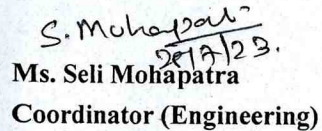 S. Mohapatra
20/7/23.
Ms. Seli Mohapatra
Coordinator (Engineering)